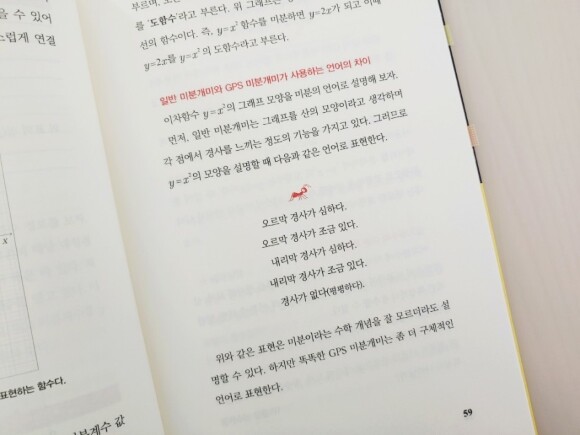 을 수 있어
스럽게 연결
x
표현하는 함수다.
분계수 값
를 '도함수'라고 부른다. 위 그래프는
선의 함수이다. 즉, y=x² 함수를 미분하면 y=2x가 되고 이때
y=2x를 y=x²의 도함수라고 부른다.
일반 미분개미와 GPS 미분개미가 사용하는 언어의 차이
이차함수 y=x²의 그래프 모양을 미분의 언어로 설명해 보자.
먼저, 일반 미분개미는 그래프를 산의 모양이라고 생각하며
각 점에서 경사를 느끼는 정도의 기능을 가지고 있다. 그러므로
y=x²의 모양을 설명할 때 다음과 같은 언어로 표현한다.
오르막 경사가 심하다.
오르막 경사가 조금 있다.
내리막 경사가 심하다.
내리막 경사가 조금 있다.
경사가 없다(평평하다).
위와 같은 표현은 미분이라는 수학 개념을 잘 모르더라도 설
명할 수 있다. 하지만 똑똑한 GPS 미분개미는 좀 더 구체적인
언어로 표현한다.
59